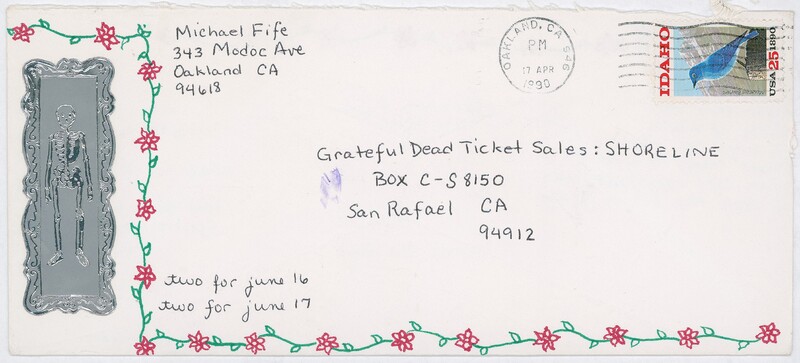 Michael Fife
343 Modoc Ave
Oakland CA
94618
OAKLAND, CA 946
PM
17 APR
1990
IDAHO
USA 25 1890
Grateful Dead Ticket Sales: SHORELINE
BOX C-S 8150
San Rafael CA
94912
two for june 16
two for june 17